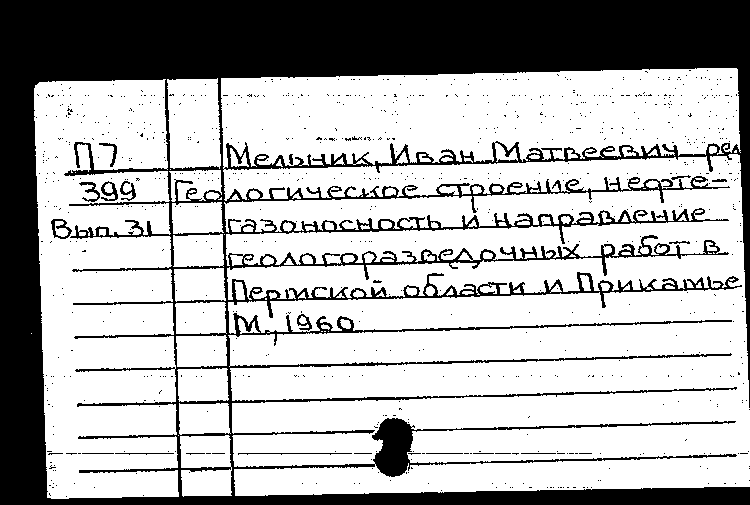 П7 Мельник, Иван Матвеевич ред
399 Геологическое строение, нефте-
Вып. 31 газоносность и направление
геологоразведочных работ в
Пермской области и Прикамье
М., 1960